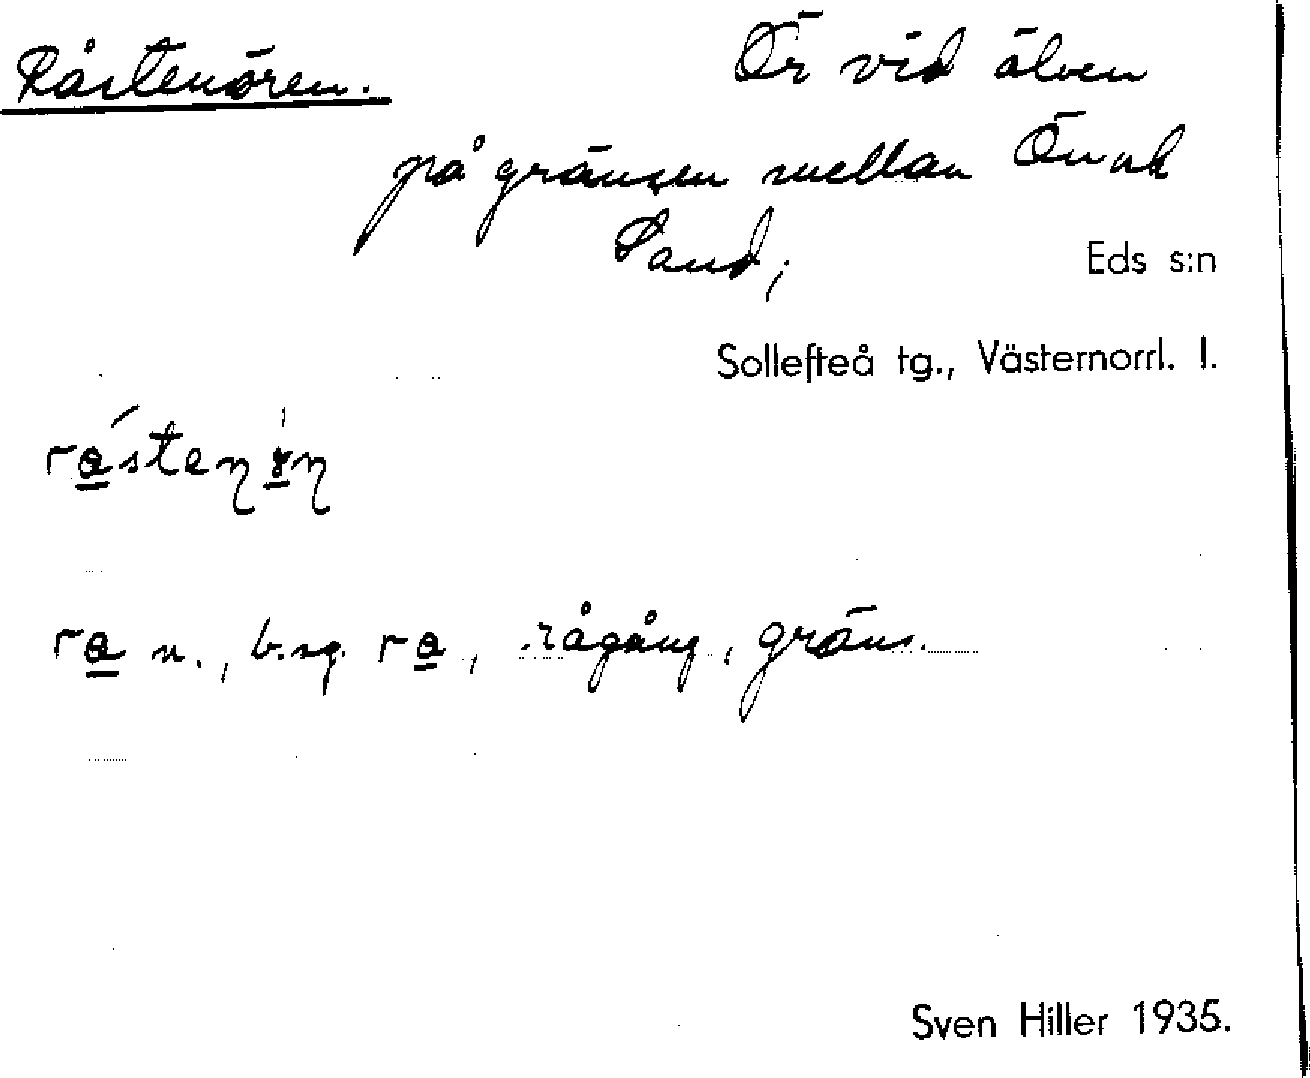 Råstenören. Ör vid älven
på gränsen mellan Ön och
Sand;
Eds s:n
Sollefteå tg., Västernorrl. l.
n., b.sg. , rågång, gräns.
Sven Hiller 1935.